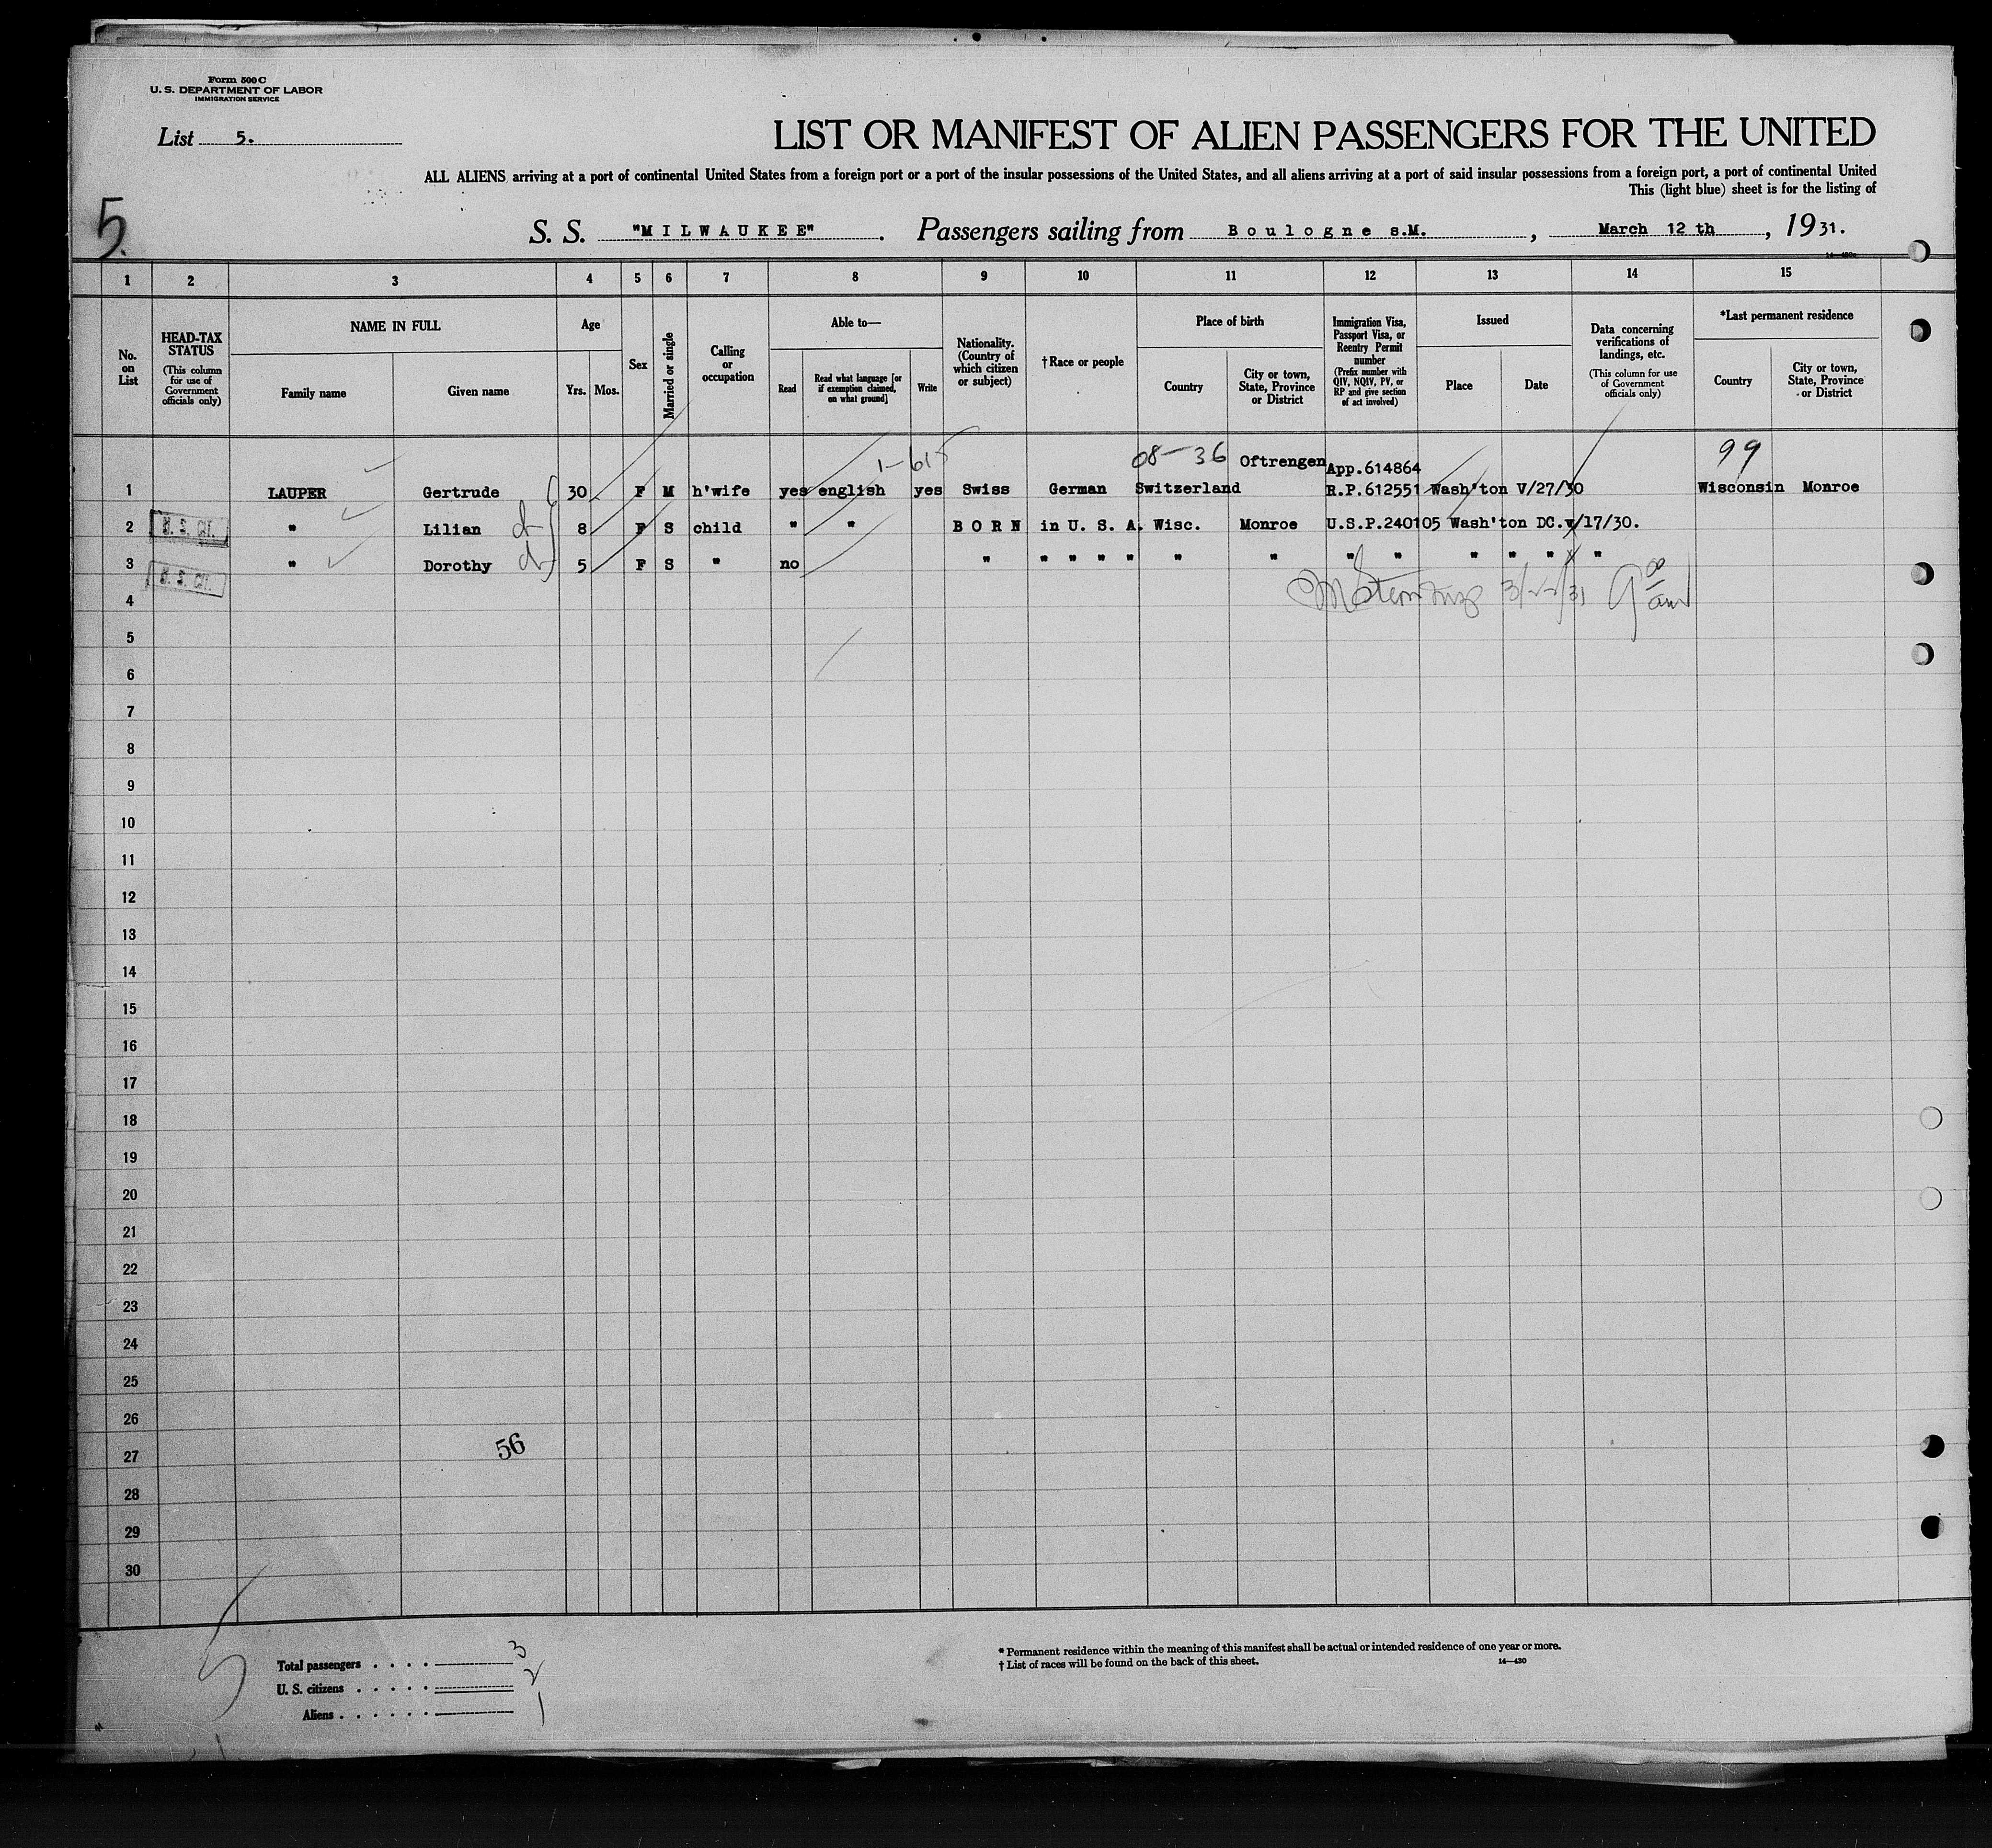 Form 500 C
U. S. DEPARTMENT OF LABOR
IMMIGRATION SERVICE
List 5.
LIST OR MANIFEST OF ALIEN PASSENGERS FOR THE UNITED
ALL ALIENS arriving at a port of continental United States from a foreign port or a port of the insular possessions of the United States, and all aliens arriving at a port of said insular possessions from a foreign port, a port of continental United
This (light blue) sheet is for the listing of
5.
S. S. "MILWAUKEE". Passengers sailing from Boulogne s.M., March 12 th, 1931.
1 2 3 4 5 6 7 8 9 10 11 12 13 14 15
No. on List
HEAD-TAX STATUS (This column for use of Government officials only)
NAME IN FULL
Family name Given name
Age
Yrs. Mos.
Sex
Married or single
Calling or occupation
Able to—
Read Read what language [or if exemption claimed, on what ground] Write
Nationality. (Country of which citizen or subject)
† Race or people
Place of birth
Country City or town, State, Province or District
Immigration Visa, Passport Visa, or Reentry Permit number (Prefix number with QIV, NQIV, PV, or RP and give section of act involved)
Issued
Place Date
Data concerning verifications of landings, etc. (This column for use of Government officials only)
*Last permanent residence
Country City or town, State, Province or District
1-615 08-36 Oftrengen App.614864 99
1 LAUPER Gertrude 30 F M h'wife yes english yes Swiss German Switzerland R.P.612551 Wash'ton V/27/30 Wisconsin Monroe
2 " Lilian 8 F S child " " BORN in U. S. A. Wisc. Monroe U.S.P.240105 Wash'ton DC.v/17/30.
3 " Dorothy 5 F S " no " " " " " " " " " " " " "
4
5
6
7
8
9
10
11
12
13
14
15
16
17
18
19
20
21
22
23
24
25
26
27 56
28
29
30
Total passengers . . . . 3
U. S. citizens . . . . . 2
Aliens . . . . . . 1
* Permanent residence within the meaning of this manifest shall be actual or intended residence of one year or more.
† List of races will be found on the back of this sheet.
14—430